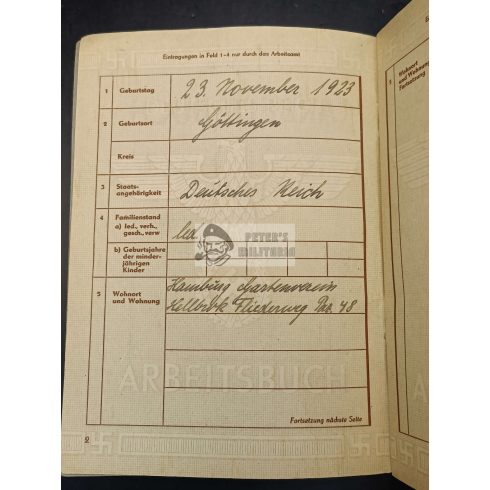 Eintragungen in Feld 1-4 nur durch das Arbeitsamt
1 Geburtstag 23. November 1923
2 Geburtsort Göttingen
Kreis
3 Staats-
angehörigkeit Deutsches Reich
4 Familienstand
a) led., verh.,
gesch., verw led.
b) Geburtsjahre
der minder-
jährigen
Kinder
PETER'S
MILITARIA
5 Wohnort
und Wohnung
Hamburg Gartenverein
Hellbrok Fliederweg No. 48
ARBEITSBUCH
Fortsetzung nächste Seite
2
5 Wohnort
und Wohnung
Fortsetzung